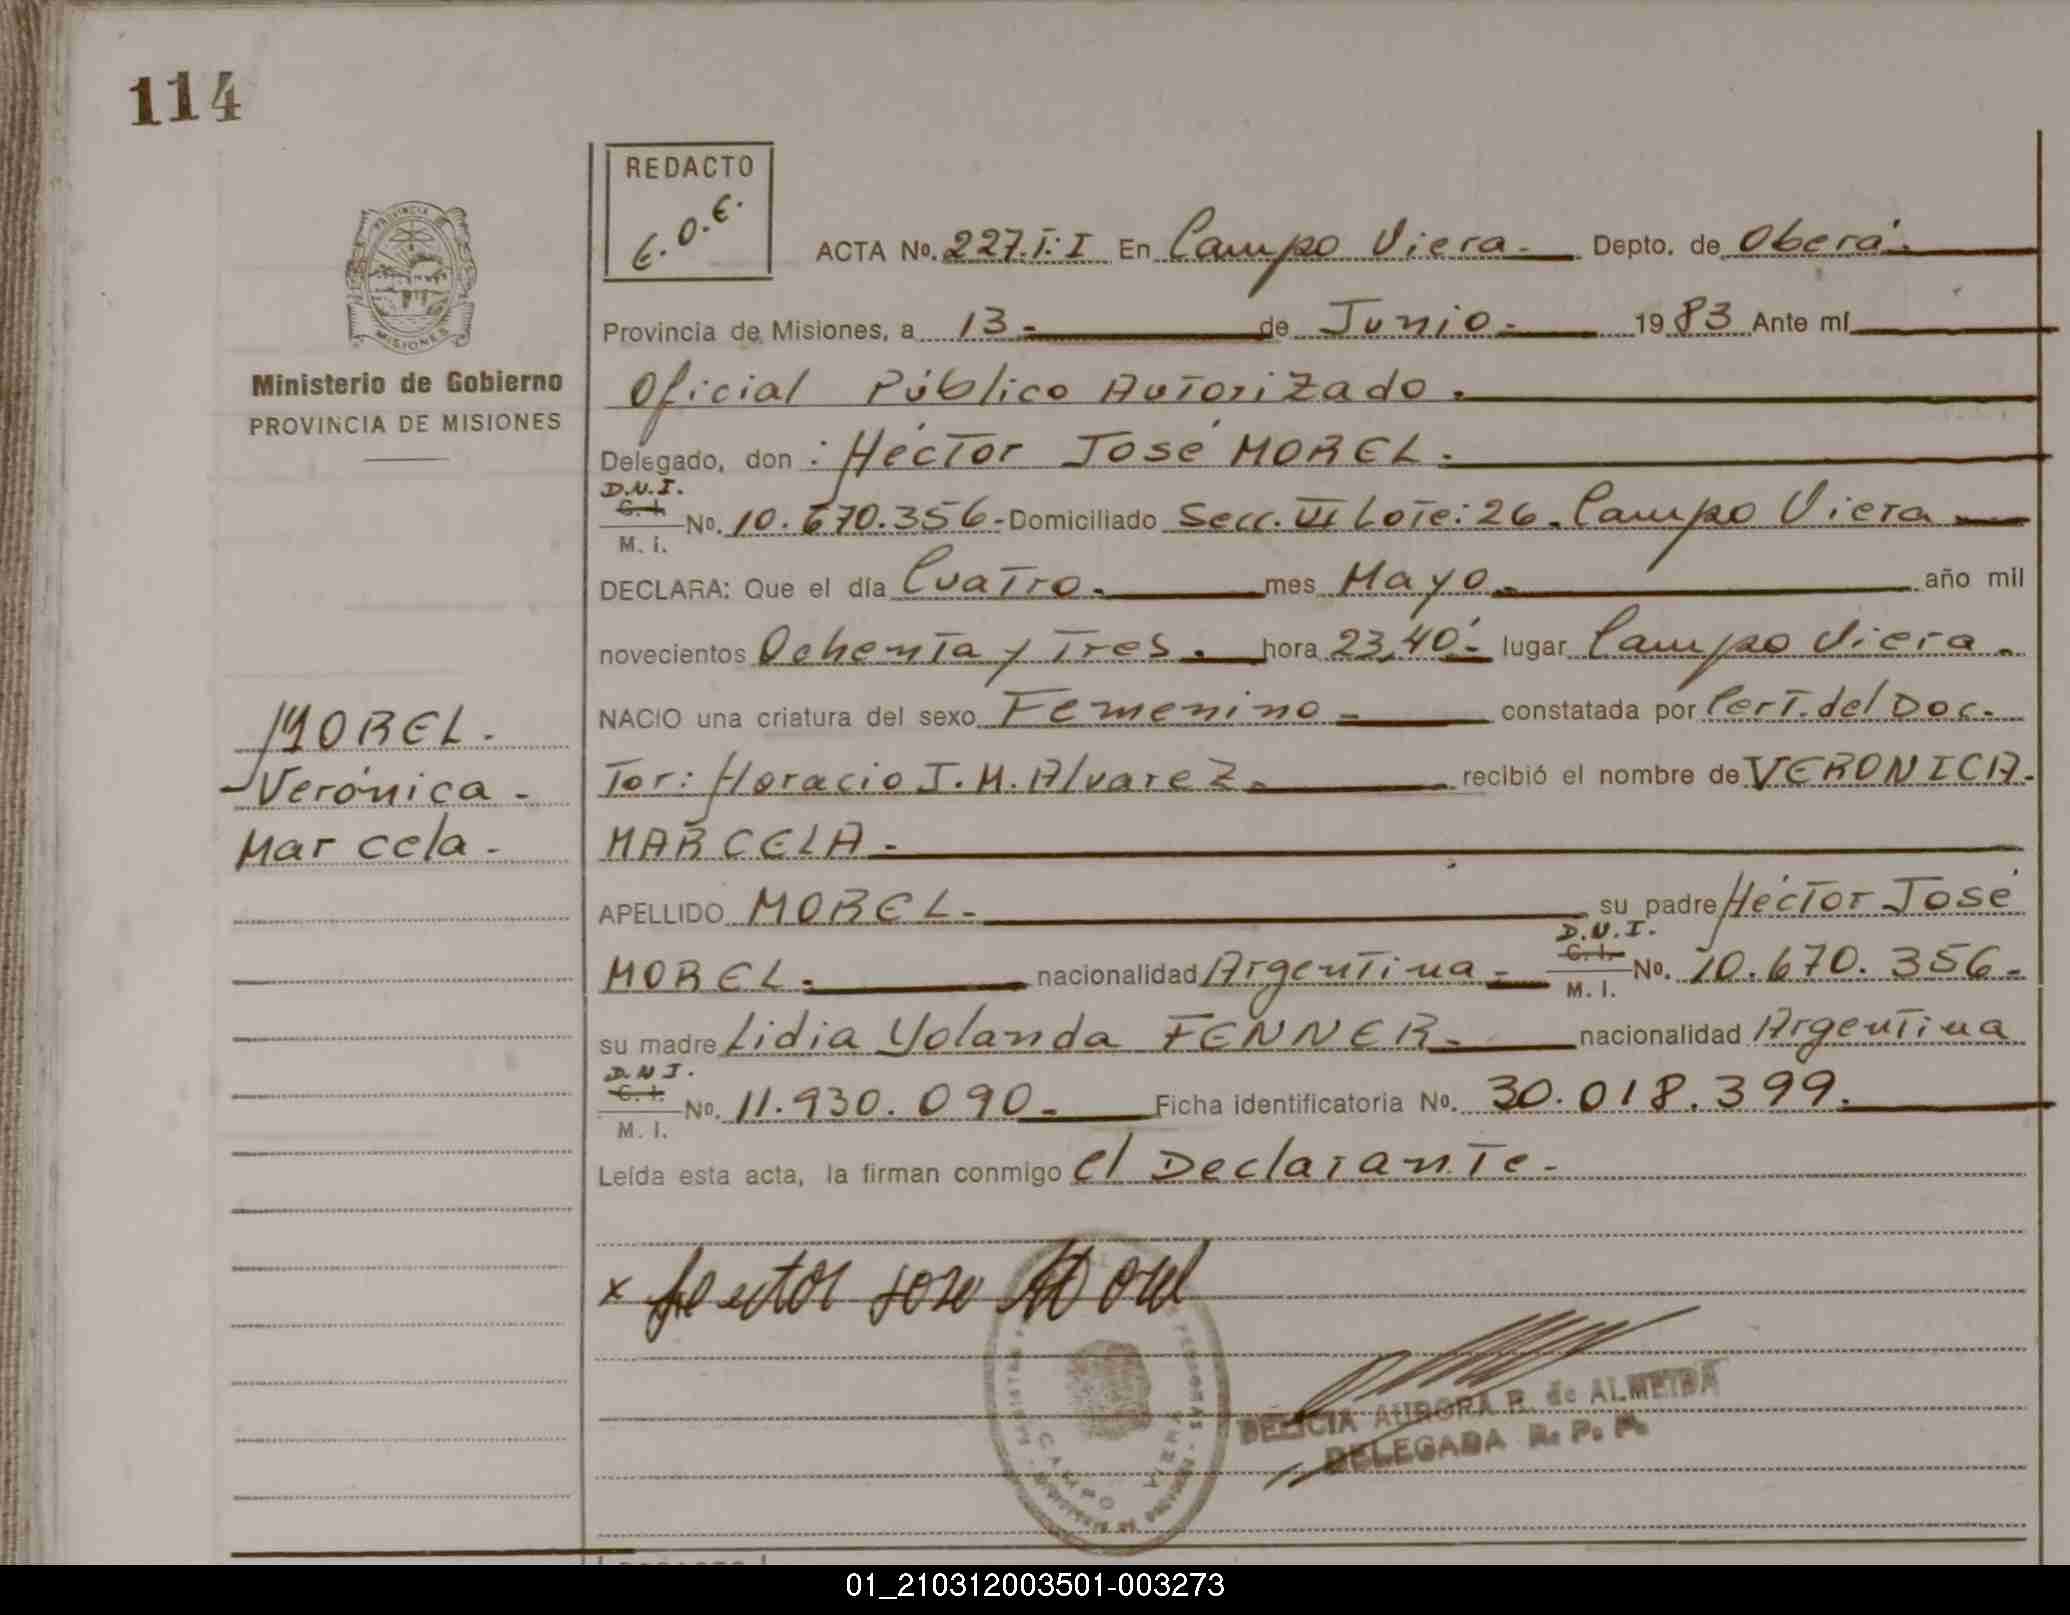 114
REDACTO
E.O.E.
PROVINCIA DE
MISIONES
Ministerio de Gobierno
PROVINCIA DE MISIONES
ACTA No. 227.T:I En Campo Viera.- Depto. de Oberá.-
Provincia de Misiones, a 13.- de Junio.- 1983 Ante mí
Oficial Público Autorizado.
Delegado, don: Héctor José MOREL.
D.N.I.
C. I.
M. I. No. 10.670.356.- Domiciliado Secc. VI Lote: 26. Campo Viera.-
DECLARA: Que el día Cuatro.- mes Mayo.- año mil
novecientos Ochenta y Tres.- hora 23,40'.- lugar Campo Viera.
NACIO una criatura del sexo Femenino.- constatada por Cert. del Doc.
Tor: Horacio J. M. Alvarez.- recibió el nombre de VERONICA.
MARCELA.-
MOREL.
-Verónica.-
Marcela.-
APELLIDO MOREL.- su padre Héctor José
MOREL.- nacionalidad Argentina.- D.N.I. C. I. M. I. No. 10.670.356.-
su madre Lidia Yolanda FENNER.- nacionalidad Argentina
D.N.I.
C. I.
M. I. No. 11.930.090.- Ficha identificatoria No. 30.018.399.
Leída esta acta, la firman conmigo el Declarante.-
x Hector Jose Morel
DELICIA AURORA R. de ALMEIDA
DELEGADA R. P. P.
CAMPO VIERA
01_210312003501-003273